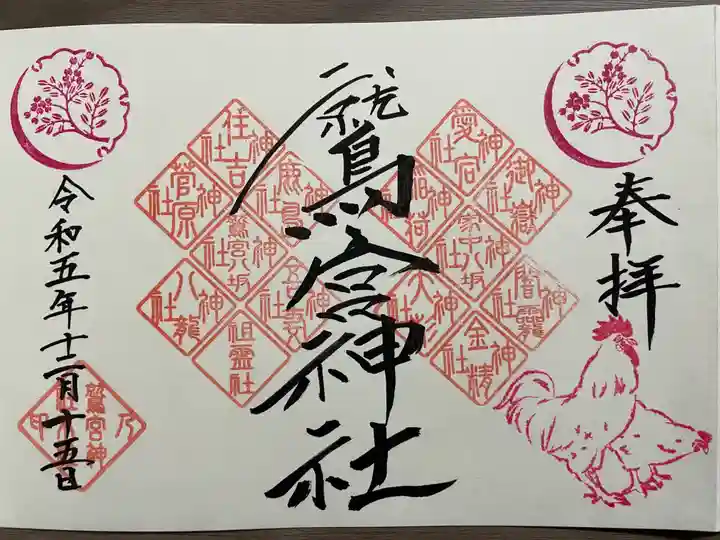 奉拝
鷲宮神社
愛宕神社
御嶽神社
稲荷神社
家中八坂
闇龗神社
金精神社
住吉神社
鹿島神社
菅原神社
鷲宮八坂
八龍神社
祖霊社
令和五年十二月十五日
鷲宮神